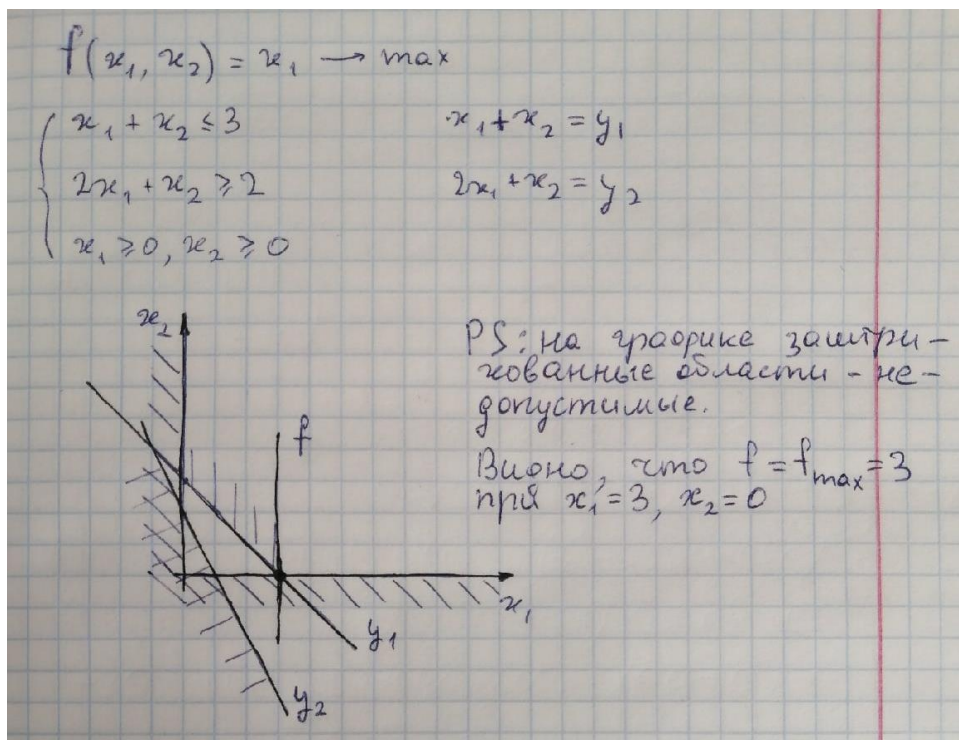 f(x₁, x₂) = x₁ → max
x₁ + x₂ ≤ 3
x₁ + x₂ = y₁
2x₁ + x₂ ≥ 2
2x₁ + x₂ = y₂
x₁ ≥ 0, x₂ ≥ 0
x₂
f
x₁
y₁
y₂
PS: на графике заштри-
хованные области - не-
допустимые.
Видно, что f = fmax = 3
при x₁ = 3, x₂ = 0